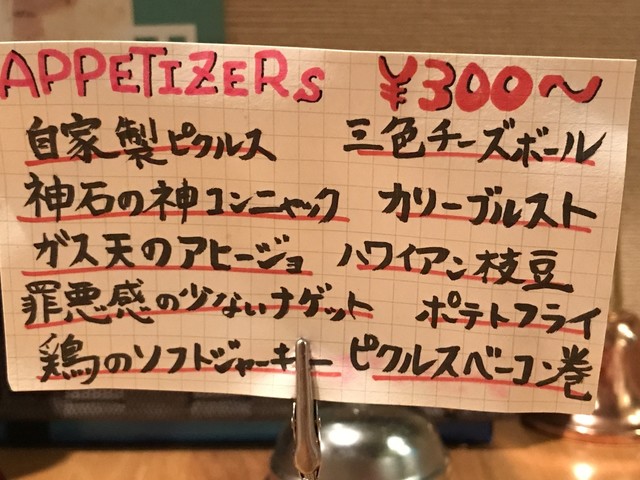 APPETIZERs ¥300〜
自家製ピクルス 三色チーズボール
神石の神コンニャック カリーブルスト
ガス天のアヒージョ ハワイアン枝豆
罪悪感の少ないナゲット ポテトフライ
鶏のソフトジャーキー ピクルスベーコン巻